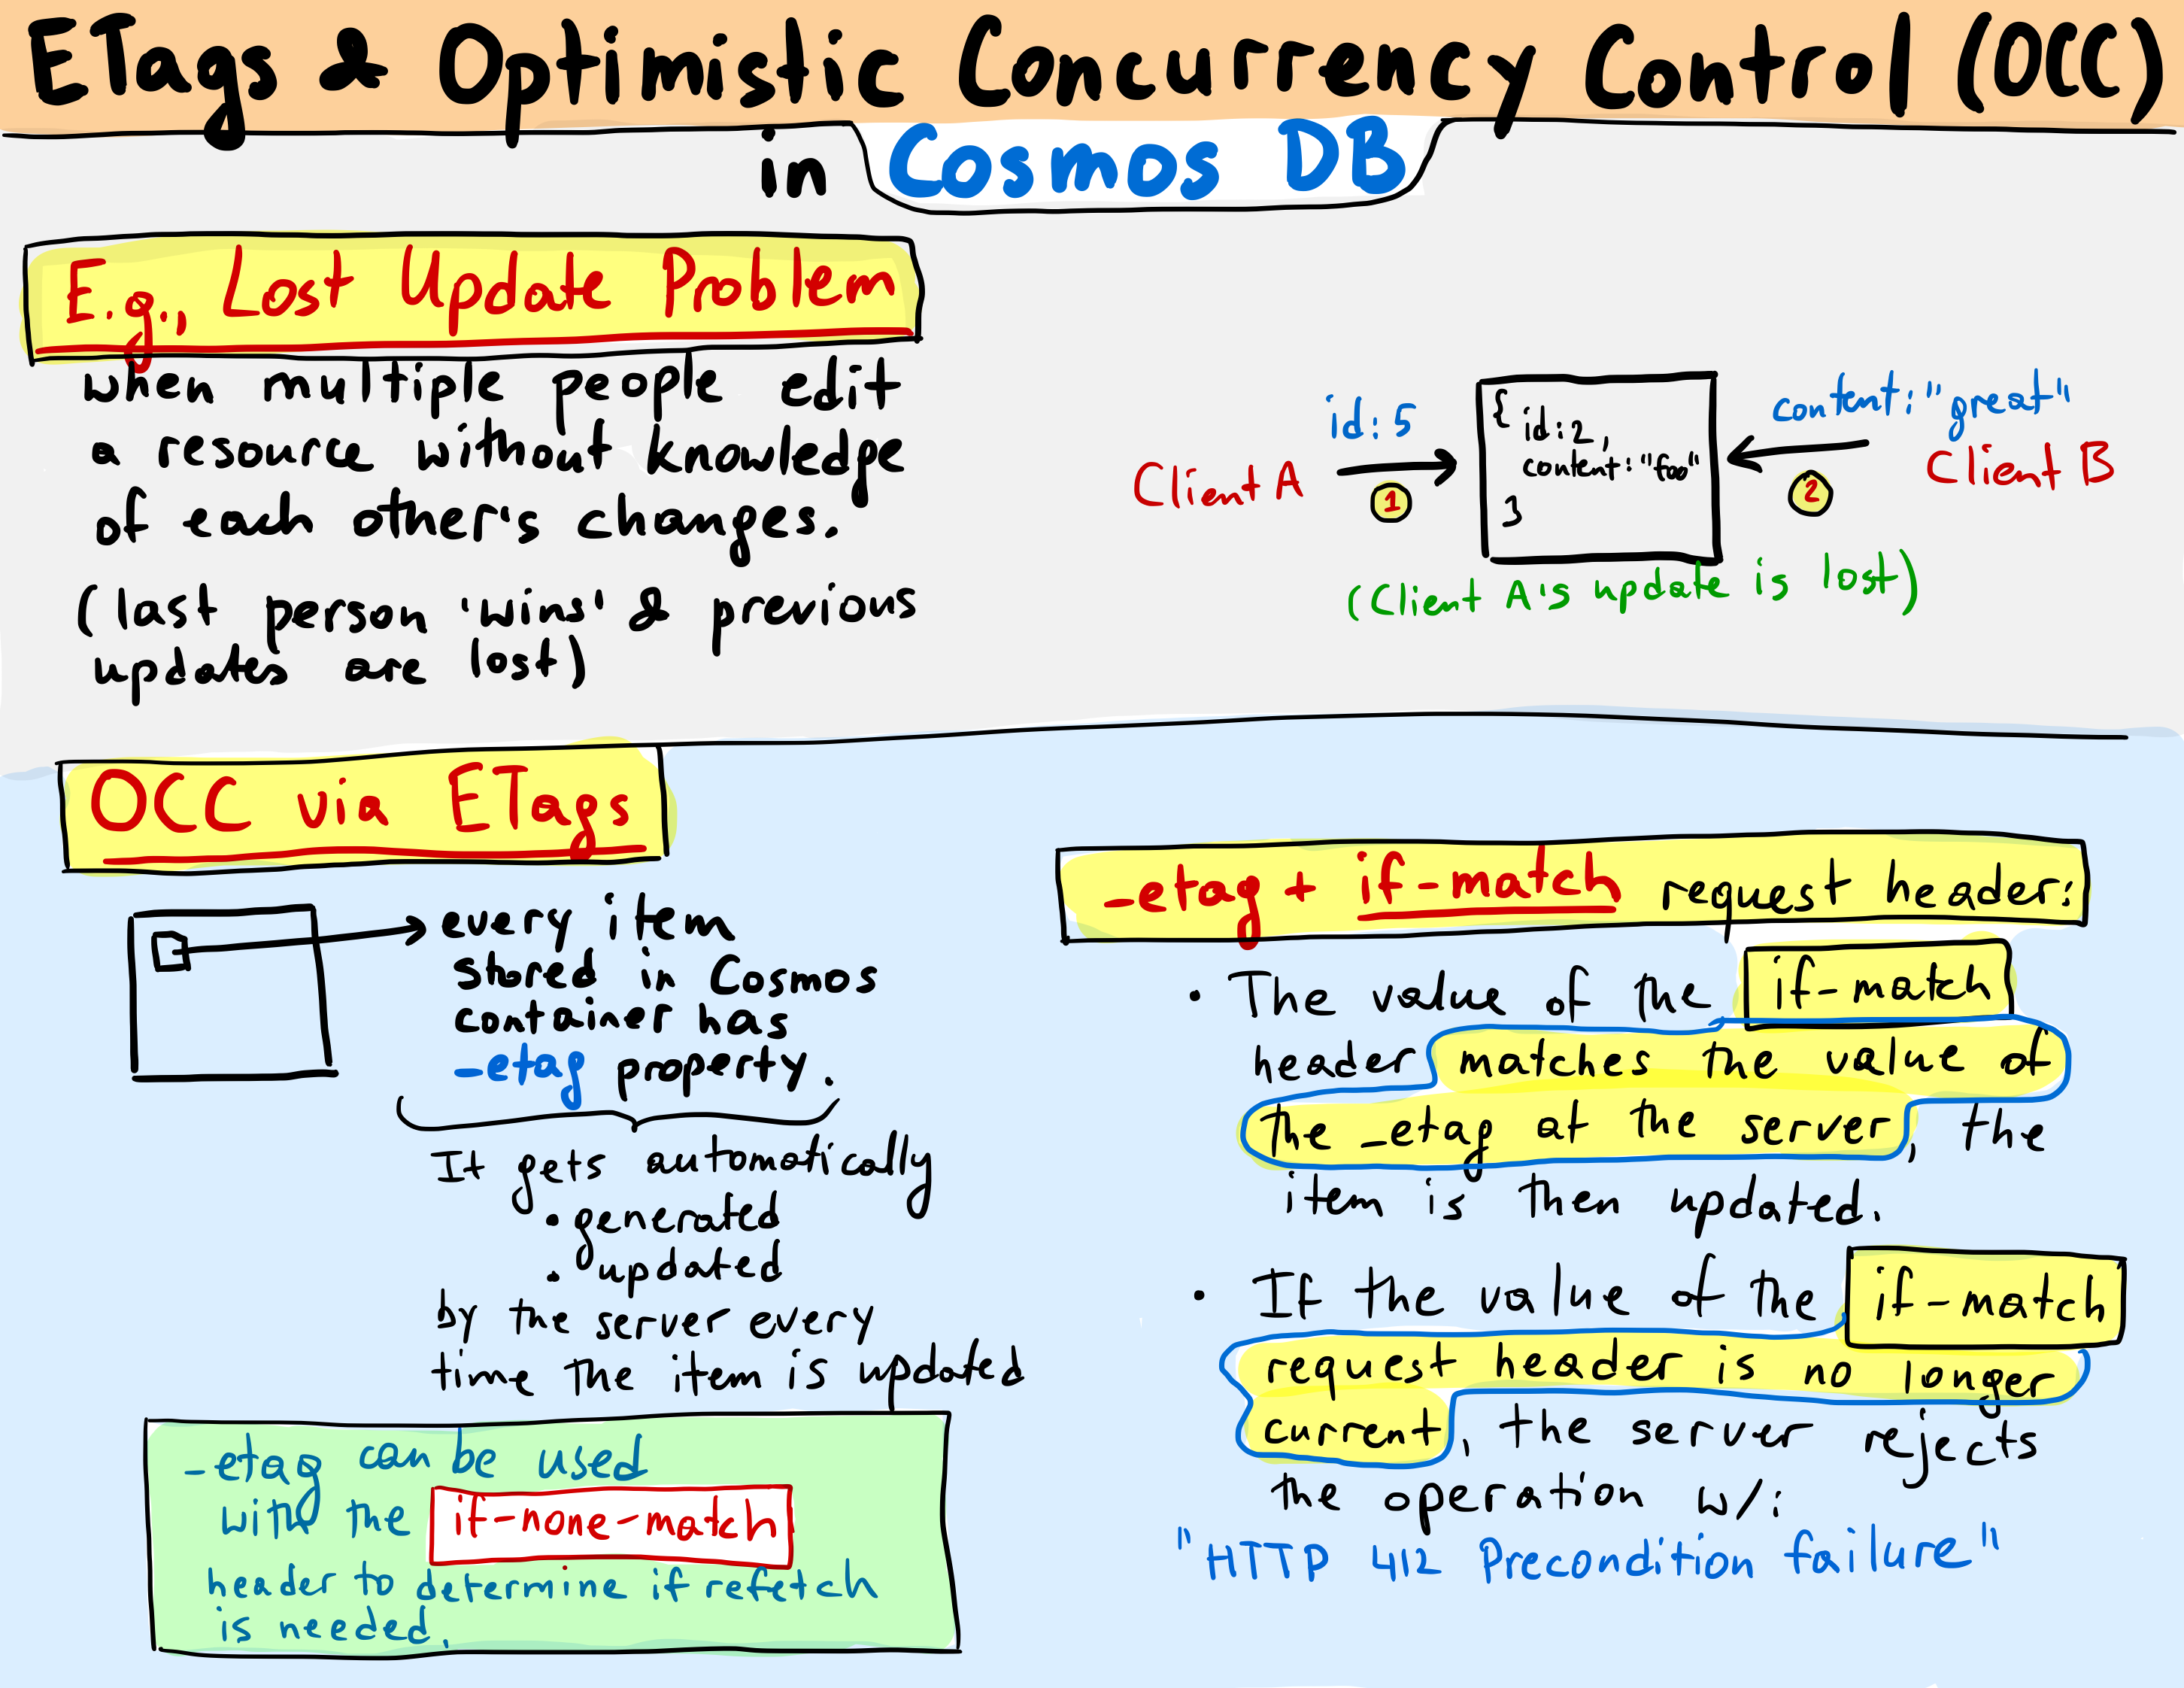 ETags & Optimistic Concurrency Control (OCC)
in Cosmos DB
E.g., Lost Update Problem
when multiple people edit
a resource without knowledge
of each other's changes.
(last person 'wins' & previous
updates are lost)
id: 5
Client A
1
{
id: 2,
content: "foo"
}
content: "great"
Client B
2
(Client A's update is lost)
OCC via ETags
every item
stored in Cosmos
container has
_etag property.
It gets automatically
• generated
• updated
by the server every
time the item is updated
_etag can be used
with the if-none-match
header to determine if refetch
is needed.
_etag + if-match request header:
• The value of the if-match
header matches the value of
the _etag at the server, the
item is then updated.
• If the value of the if-match
request header is no longer
current, the server rejects
the operation w/:
"HTTP 412 Precondition failure"